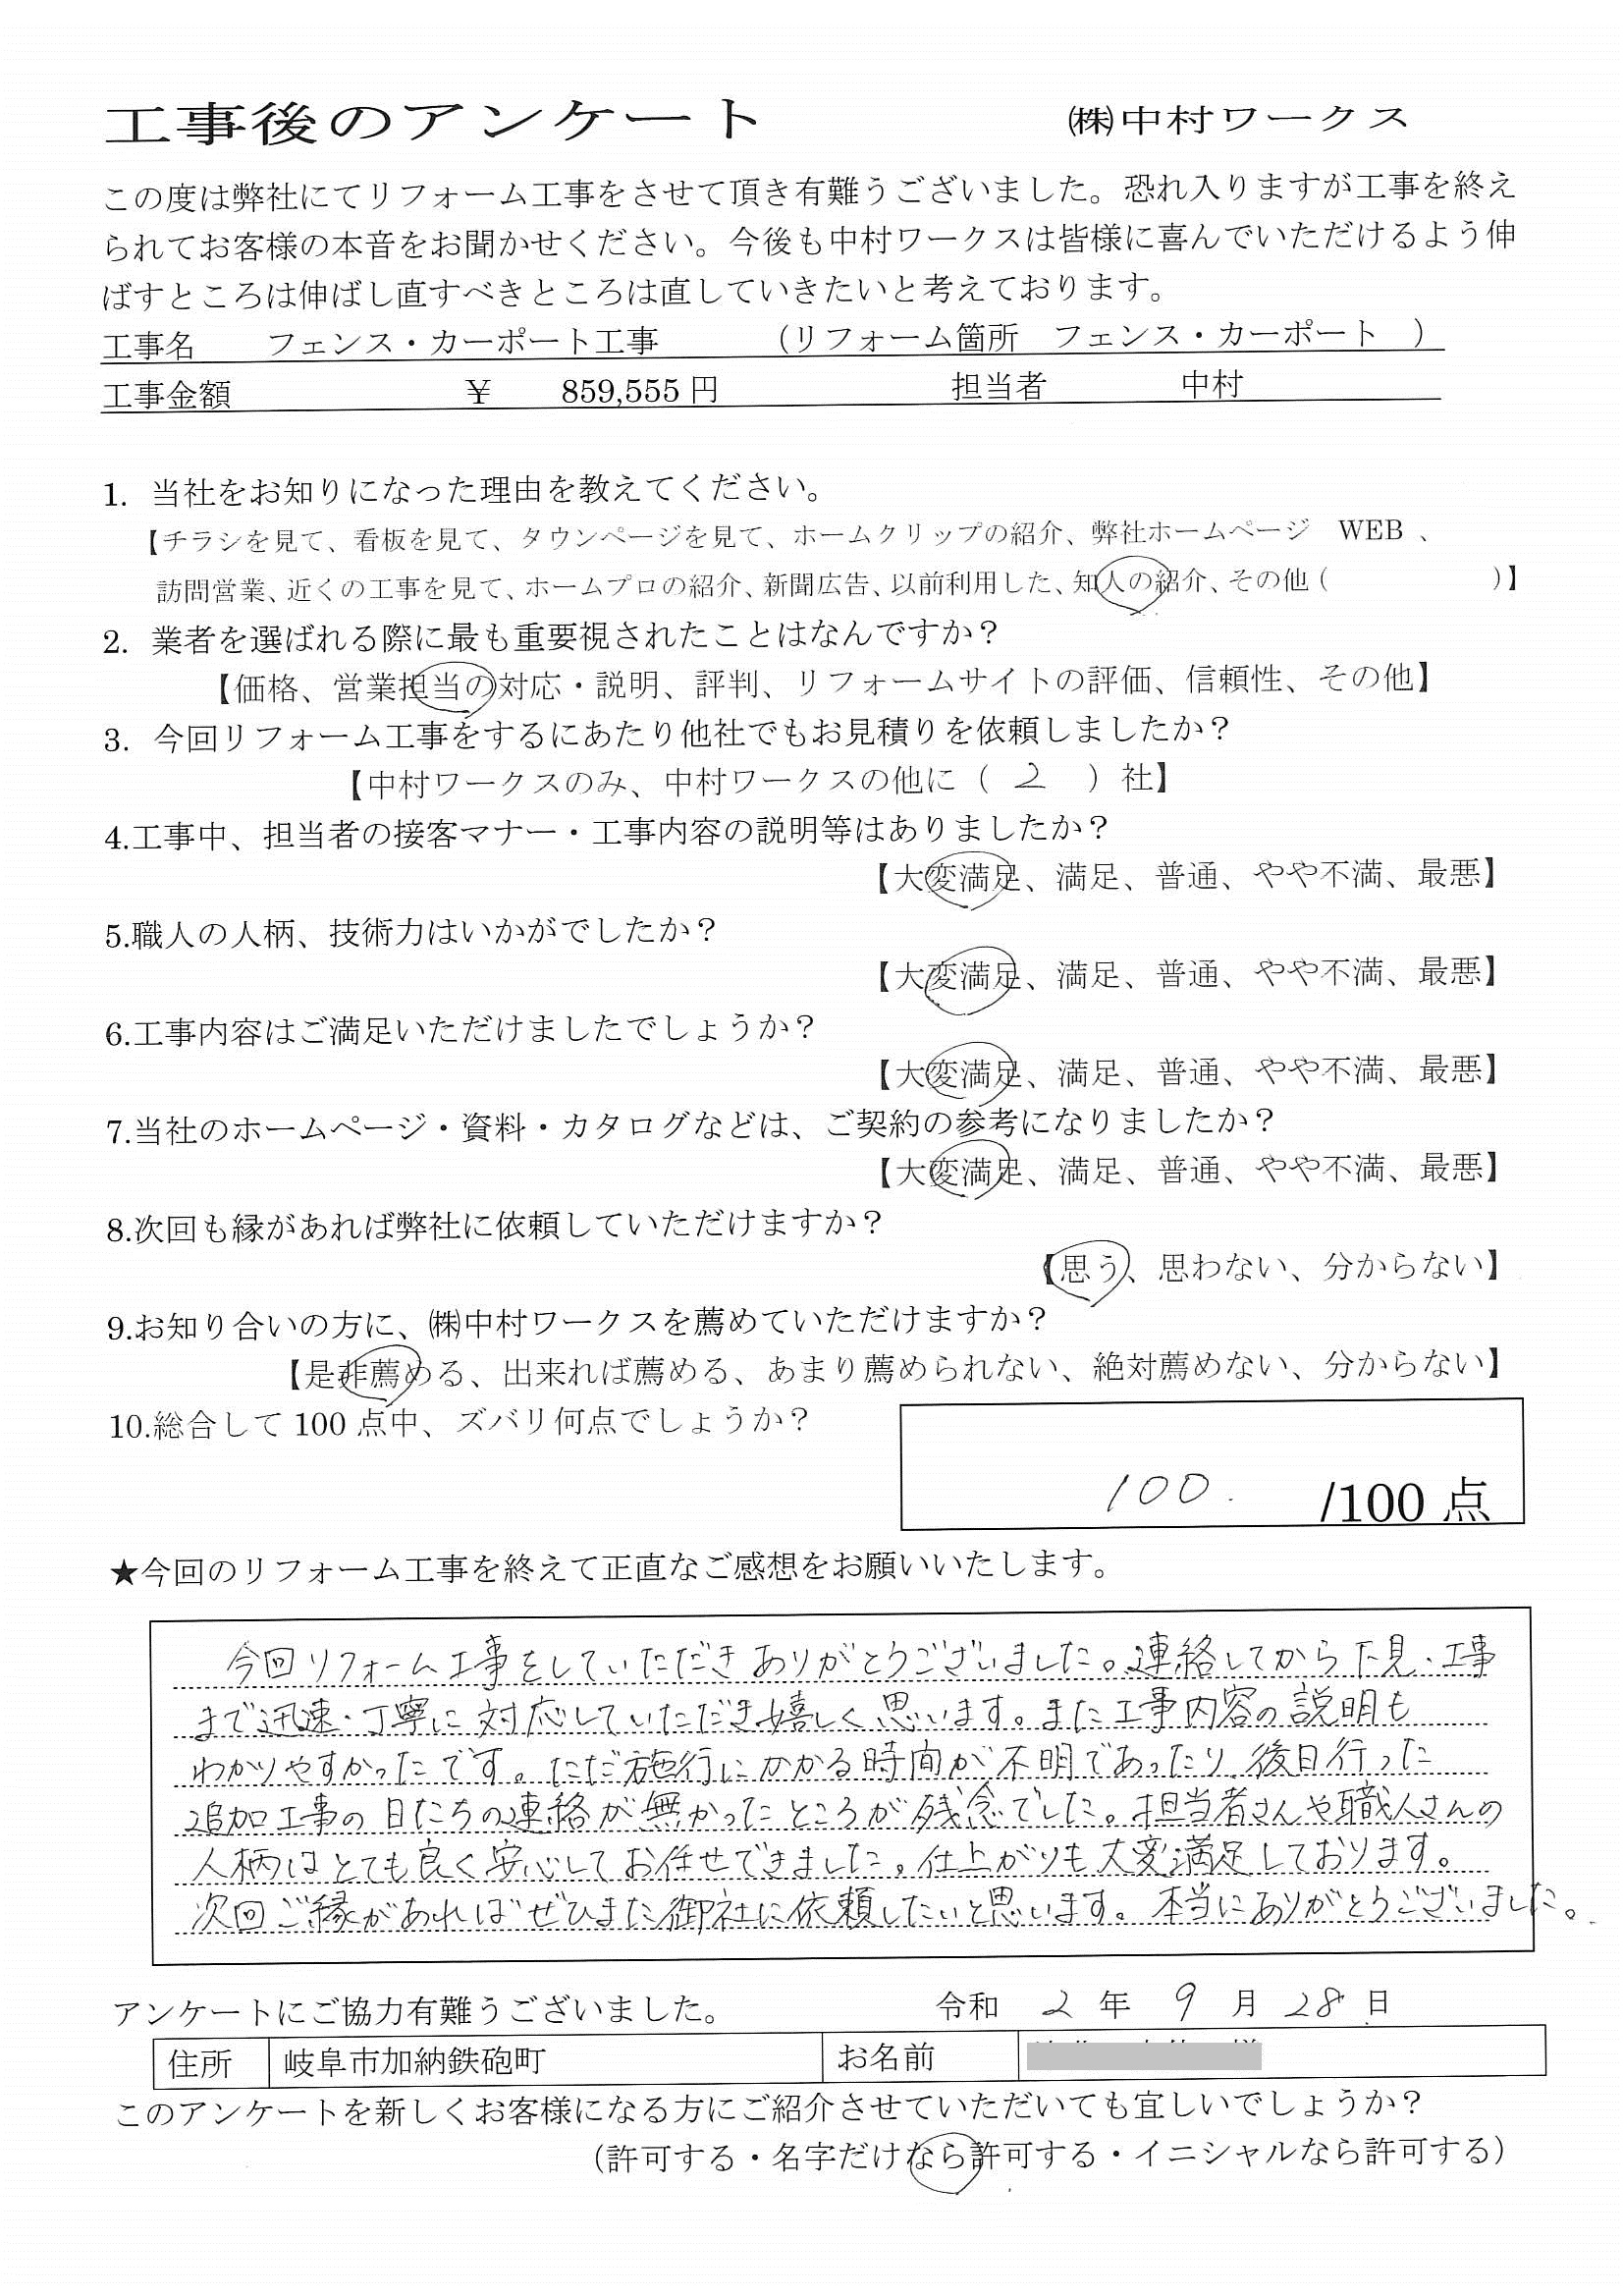 工事後のアンケート　㈱中村ワークス
この度は弊社にてリフォーム工事をさせて頂き有難うございました。恐れ入りますが工事を終え
られてお客様の本音をお聞かせください。今後も中村ワークスは皆様に喜んでいただけるよう伸
ばすところは伸ばし直すべきところは直していきたいと考えております。
工事名　フェンス・カーポート工事　（リフォーム箇所　フェンス・カーポート　）
工事金額　¥　859,555 円　担当者　中村
1. 当社をお知りになった理由を教えてください。
【チラシを見て、看板を見て、タウンページを見て、ホームクリップの紹介、弊社ホームページ　WEB 、
訪問営業、近くの工事を見て、ホームプロの紹介、新聞広告、以前利用した、知人の紹介、その他（　）】
2. 業者を選ばれる際に最も重要視されたことはなんですか？
【価格、営業担当の対応・説明、評判、リフォームサイトの評価、信頼性、その他】
3. 今回リフォーム工事をするにあたり他社でもお見積りを依頼しましたか？
【中村ワークスのみ、中村ワークスの他に（ 2 ）社】
4.工事中、担当者の接客マナー・工事内容の説明等はありましたか？
【大変満足、満足、普通、やや不満、最悪】
5.職人の人柄、技術力はいかがでしたか？
【大変満足、満足、普通、やや不満、最悪】
6.工事内容はご満足いただけましたでしょうか？
【大変満足、満足、普通、やや不満、最悪】
7.当社のホームページ・資料・カタログなどは、ご契約の参考になりましたか？
【大変満足、満足、普通、やや不満、最悪】
8.次回も縁があれば弊社に依頼していただけますか？
【思う、思わない、分からない】
9.お知り合いの方に、㈱中村ワークスを薦めていただけますか？
【是非薦める、出来れば薦める、あまり薦められない、絶対薦めない、分からない】
10.総合して 100 点中、ズバリ何点でしょうか？
100. /100 点
★今回のリフォーム工事を終えて正直なご感想をお願いいたします。
今回リフォーム工事をしていただきありがとうございました。連絡してから下見・工事
まで迅速・丁寧に対応していただき嬉しく思います。また工事内容の説明も
わかりやすかったです。ただ施行にかかる時間が不明であったり、後日行った
追加工事の日たちの連絡が無かったところが残念でした。担当者さんや職人さんの
人柄はとても良く安心してお任せできました。仕上がりも大変満足しております。
次回ご縁があればぜひまた御社に依頼したいと思います。本当にありがとうございました。
アンケートにご協力有難うございました。　令和 2 年 9 月 28 日
住所　岐阜市加納鉄砲町　お名前
このアンケートを新しくお客様になる方にご紹介させていただいても宜しいでしょうか？
（許可する・名字だけなら許可する・イニシャルなら許可する）